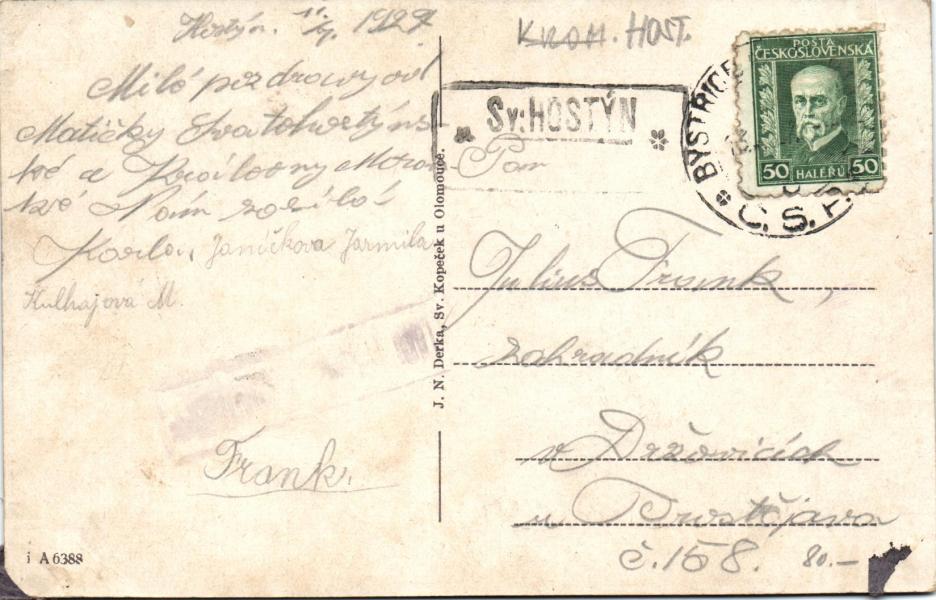 Hostýn. 11/9. 1927
Milé pozdravy od
Matičky Svatohostýns-
ké a Královny Morav-
ské Vám
Karla, Janíčkova Jarmila
Kulhajová M.
Frank.
i A 6388
J. N. Derka, Sv. Kopeček u Olomouce.
KROM. HOST.
Sv: HOSTÝN
BYSTŘICE
Č. S. P.
POŠTA
ČESKOSLOVENSKÁ
50 HALÉŘŮ 50
Pan
Julius Frank,
zahradník
v Držovicích
u Prostějova
č. 158.
80.–